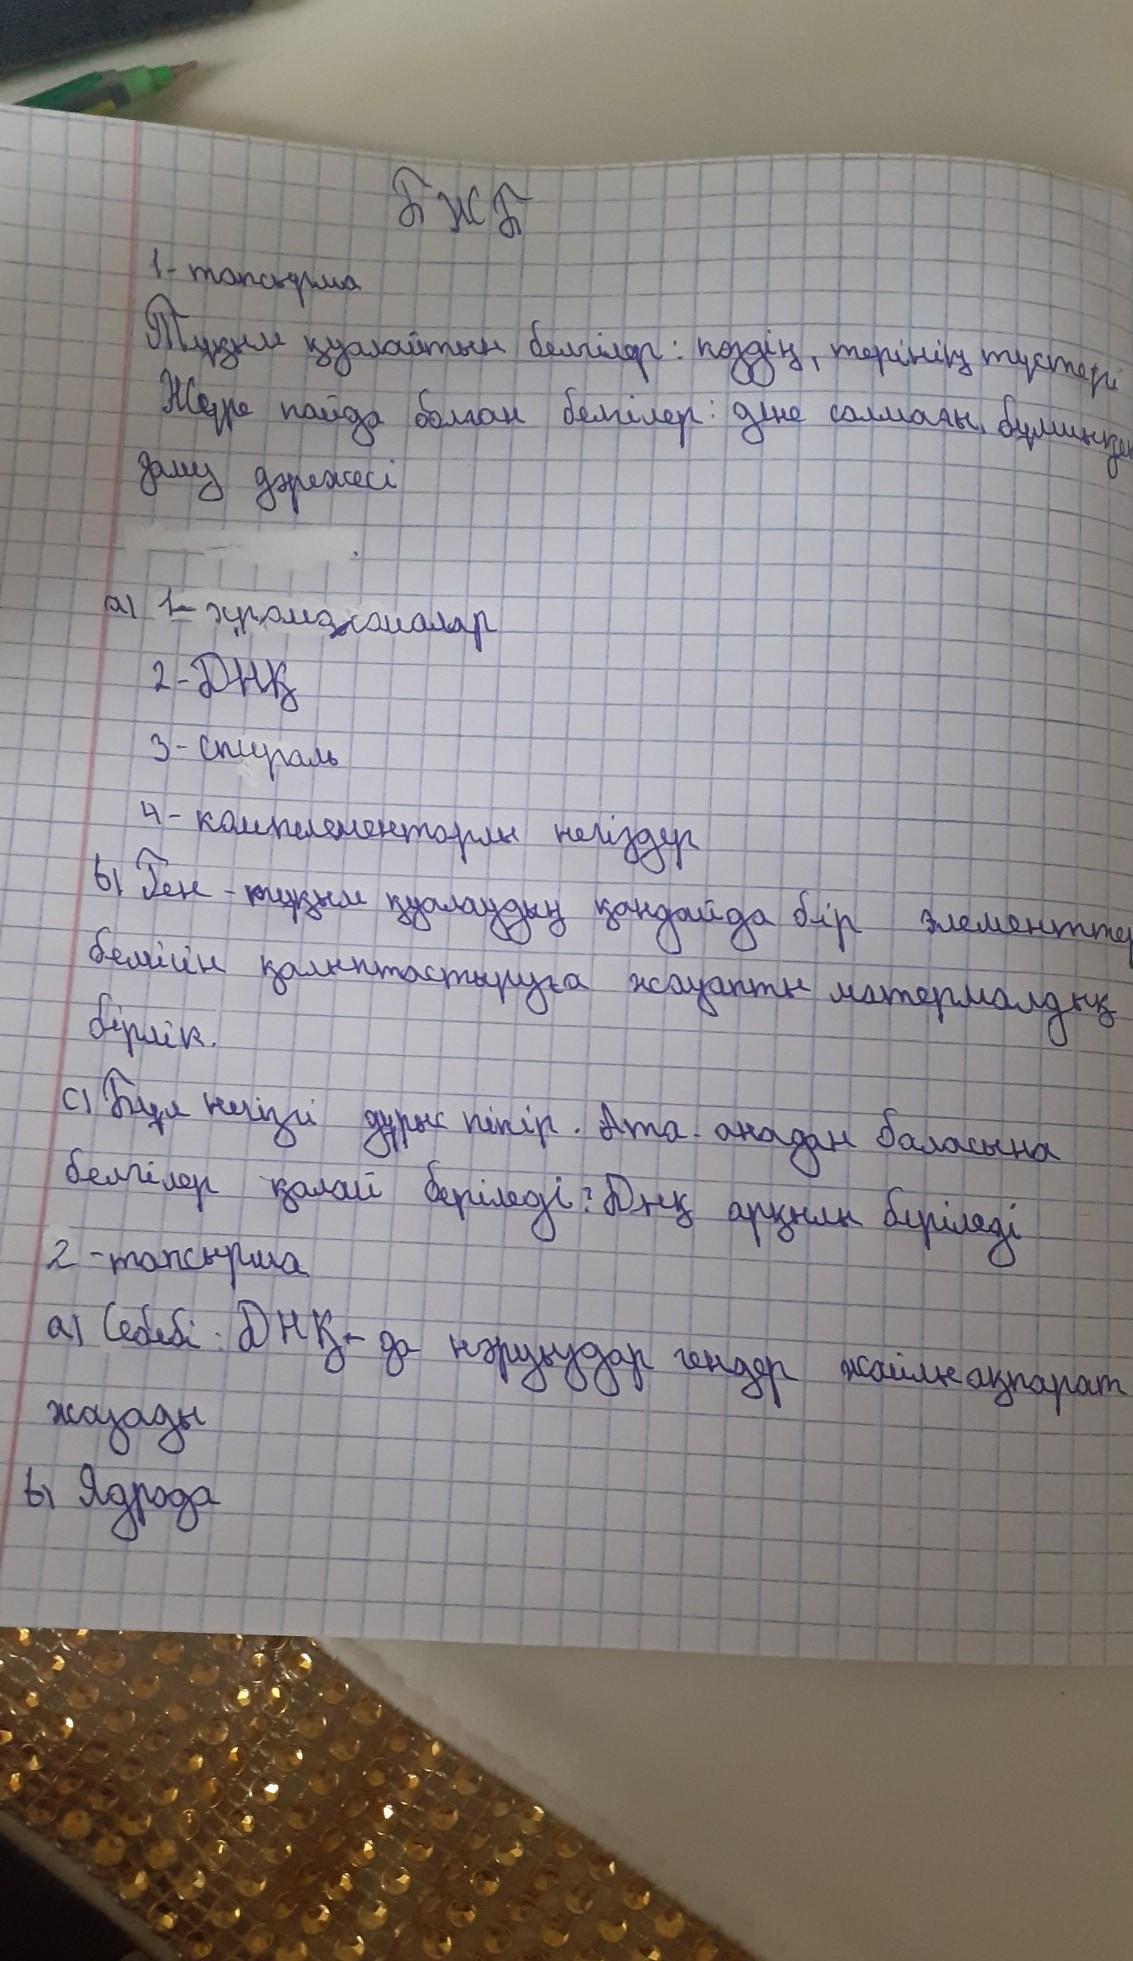 БЖБ
1-тапсырма
Тұқым қуалайтын белгілер: көздің, терінің түстері
Жүре пайда болған белгілер: дене салмағы, бұлшықет
даму дәрежесі
а) 1- хромасомалар
2-ДНҚ
3-спираль
4-комплементарлы негіздер
b) Ген - тұқым қуалаудың қандайда бір элементтер
белгісін қалыптастыруға жауапты материалдық
бірлік.
с) Бұл негізгі дұрыс пікір. Ата-анадан баласына
белгілер қалай беріледі? Днқ арқылы беріледі
2-тапсырма
а) Себебі: ДНҚ-да нәруыздар гендер жайлы ақпарат
жазады
b) Ядрода